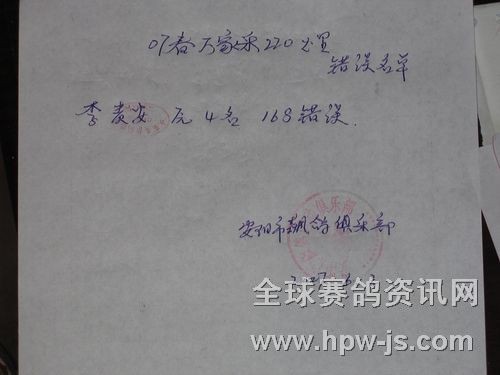 07春万家乐220公里
错误名单
李 原4名 168错误.
安阳市飙鸽俱乐部
俱乐部
全球赛鸽资讯网
www.hpw-js.com